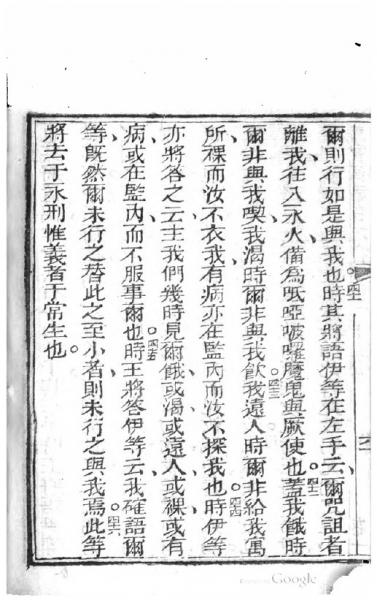 爾則行如是與我也。四一時其將語伊等在左手云、爾咒詛者
離我往入永火備為呧啞嚩囉魔鬼與厥使也。四二蓋我餓時
爾非與我喫、我渴時爾非與我飲。四三我遠人時爾非給我寓、
所裸而汝不衣、我有病亦在監內而汝不探我也。四四時伊等
亦將答之云主我們幾時見爾餓、或渴、或遠人、或裸、或有
病、或在監內而不服事爾也。四五時王將答伊等云我確語爾
等既然爾未行之替此之至小者、則未行之與我焉。四六此等
將去于永刑惟義者于常生也。
Google